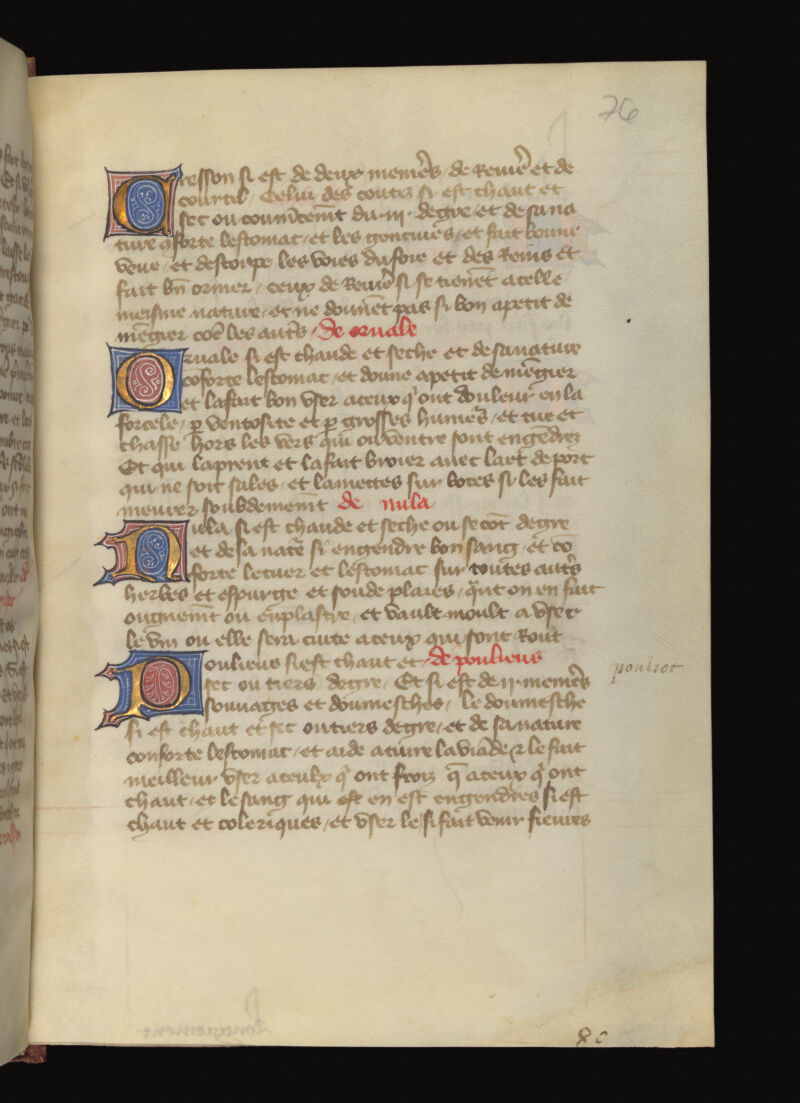 76
Cresson si est de deux menierꝭ de Reuierꝭ et de
courtil / Celui des courtiz si est chaut et
sec ou coumēcemēt du iii degre / et de sa na
ture ꝯforte lestomac / et les genciues / et fait bonne
veue / et destoupe les voies du foie et des Reins et
fait bn̄ oriner / ceux de Reuierꝭ si se tienēt a celle
meisme nature / et ne donnēt pas si bon apetit de
mēgier cōe les autrꝭ / De oruale
Oruale si est chaude et seche et de sa nature
cōforte lestomac / et donne apetit de mēgier
et la fait bon vser a ceux qͥ ont douleur en la
forcele / ꝑ ventosite et ꝑ grosses humeurs / et tue et
chasse hors les vers qui ou ventre sont engēdrez
Et qui la prent et la fait broier auec lart de porc
qui ne soit sales / et la mettes sur boces si les fait
meurer soubdemēnt de nula
Nula si est chaude et seche ou secōt degre
et de sa natē si engendre bon sang / et cō
forte le cuer et lestomac sur toutes autrꝭ
herbes et espurge et soude plaies / qͣnt on en fait
ougnemēt ou enplastre / et vault moult a vser
le vin ou elle sera cuite a ceux qui sont Rout
Pouliens si est chaut et / de pouliens
sec ou tiers degre / Et si est de ii menierꝭ
souuages et doumesches / le doumesche
si est chaut et sec ou tiers degre / et de sa nature
conforte lestomac / et aide a cuire la viāde ⁊ le fait
meilleur vser a ceulx qͥ ont froiz q̄ a ceux qͥ ont
chaut / et le sang qui est en est engendres si est
chaut et coleriques / et vser le si fait venir fieures
pouliot
80